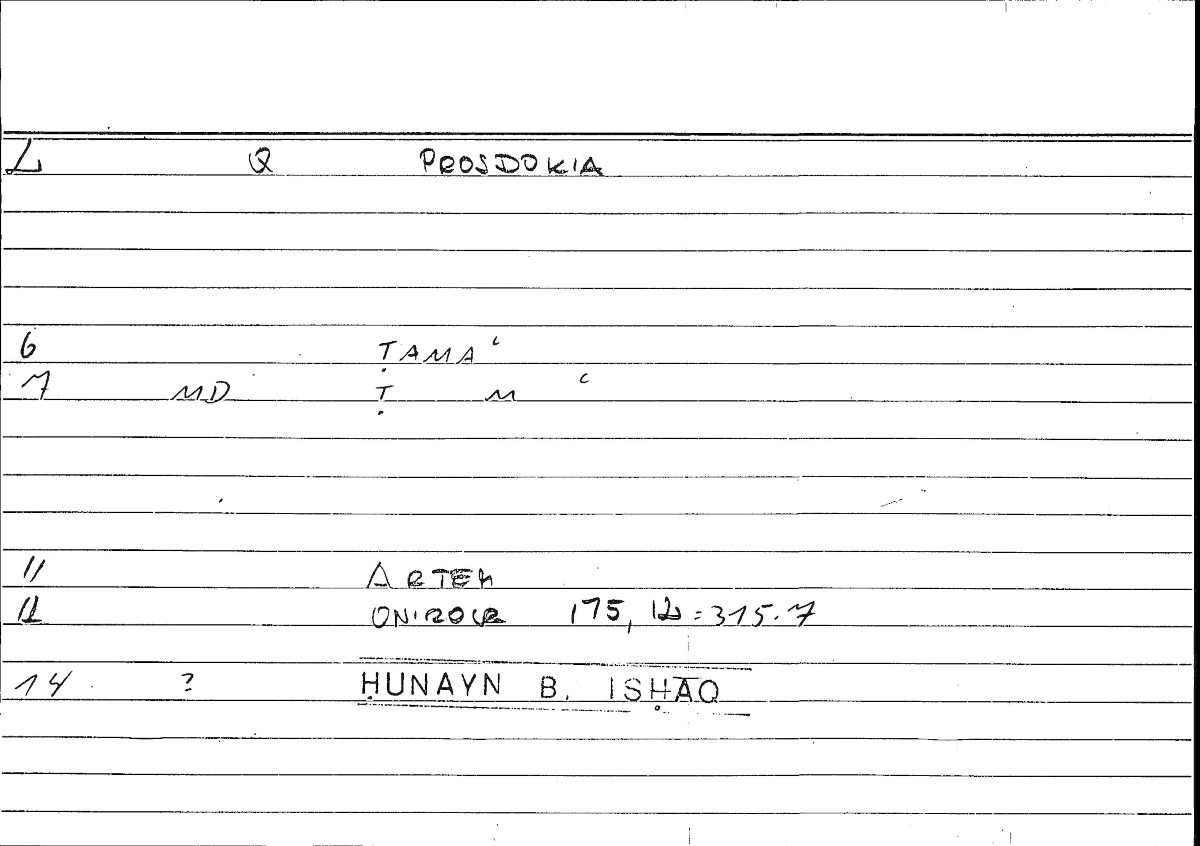 L Q PROSDOKIA
6 ṬAMAʿ
7 MD Ṭ M ʿ
11 ARTEM
12 ONIROCR 175, 12 = 315.7
14 ? ḤUNAYN B. ISḤĀQ